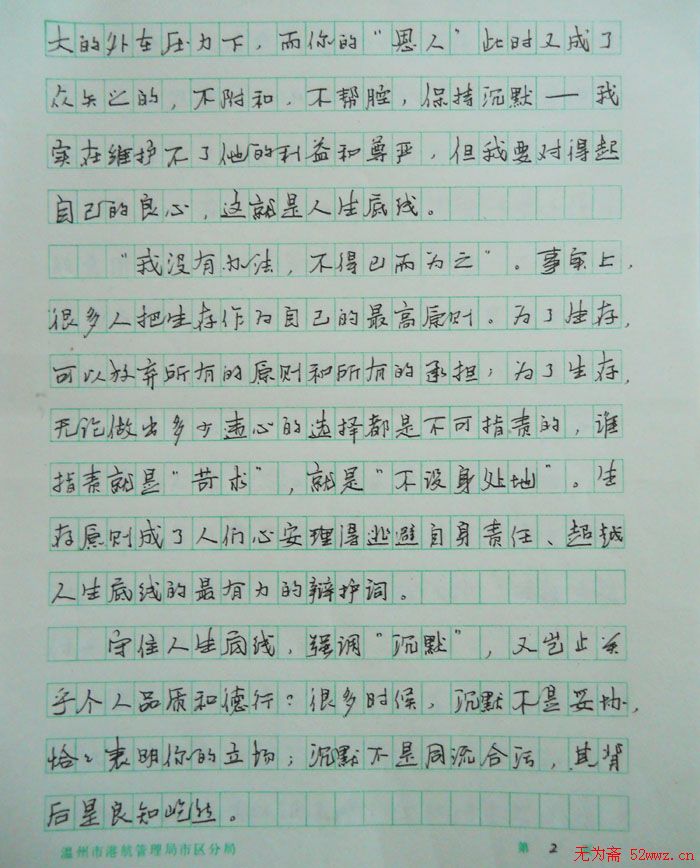 大的外在压力下，而你的“恩人”此时又成了
众矢之的，不附和，不帮腔，保持沉默—我
实在维护不了他的利益和尊严，但我要对得起
自己的良心，这就是人生底线。
“我没有办法，不得已而为之”。事实上，
很多人把生存作为自己的最高原则。为了生存，
可以放弃所有的原则和所有的承担；为了生存，
无论做出多少违心的选择都是不可指责的，谁
指责就是“苛求”，就是“不设身处地”。生
存原则成了人们心安理得逃避自身责任、超越
人生底线的最有力的辩护词。
守住人生底线，强调“沉默”，又岂止关
乎个人品质和德行？很多时候，沉默不是妥协，
恰々表明你的立场；沉默不是同流合污，其背
后是良知屹然。
温州市港航管理局市区分局 第 2
无为斋 52wwz.cn